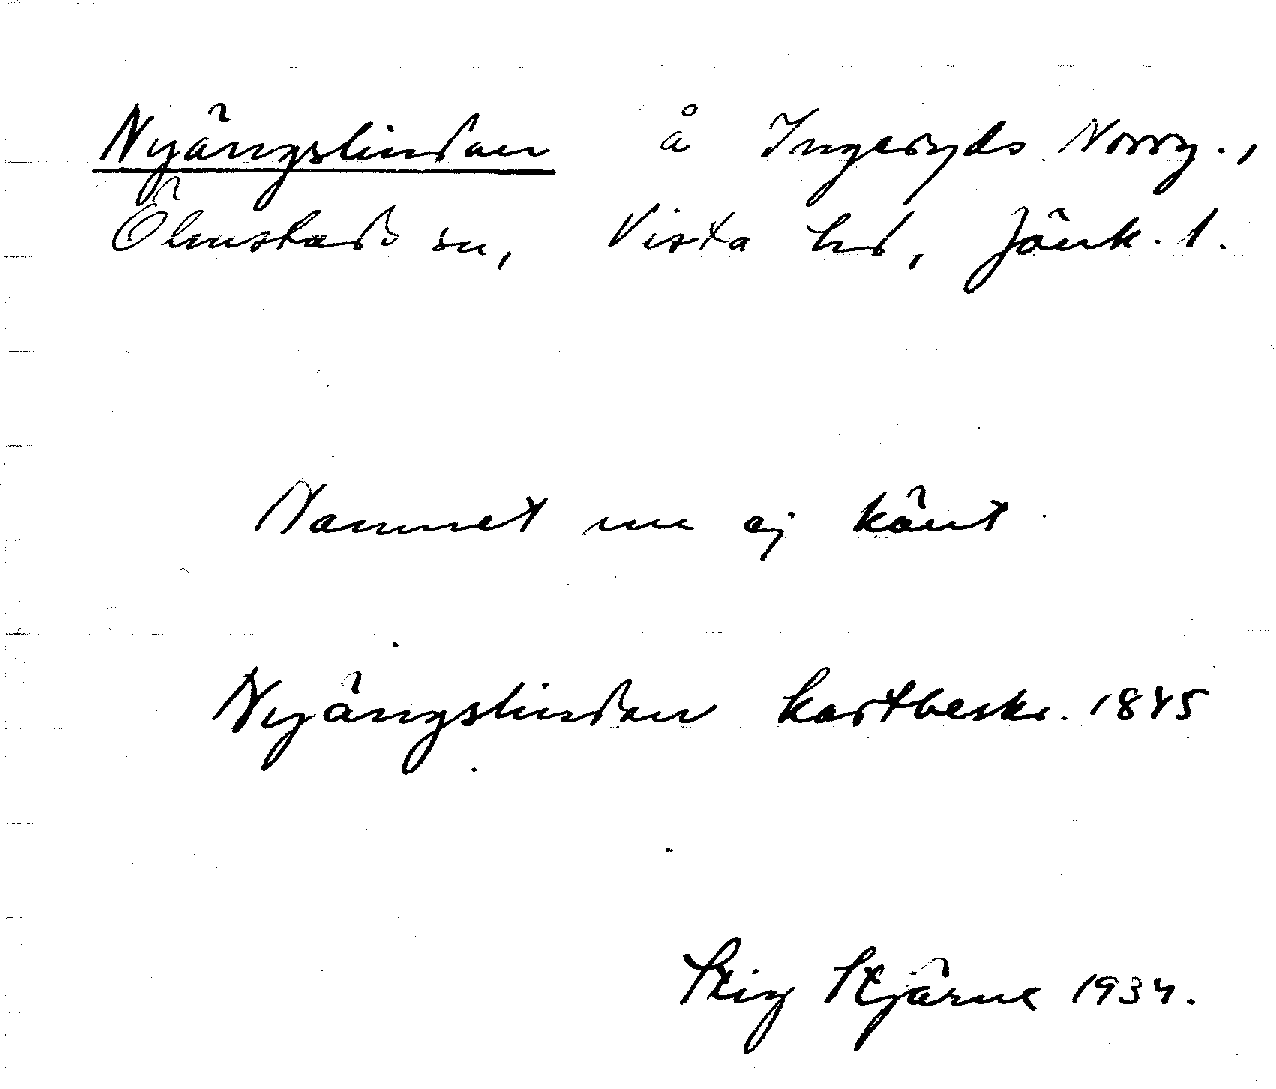 Nyängslindan å Ingaryds Norrg.,
Ölmstads sn, Vista hd, Jönk. l.
Namnet nu ej känt
Nyängslindan kartbeskr. 1845
Stig Stjärne 1934.